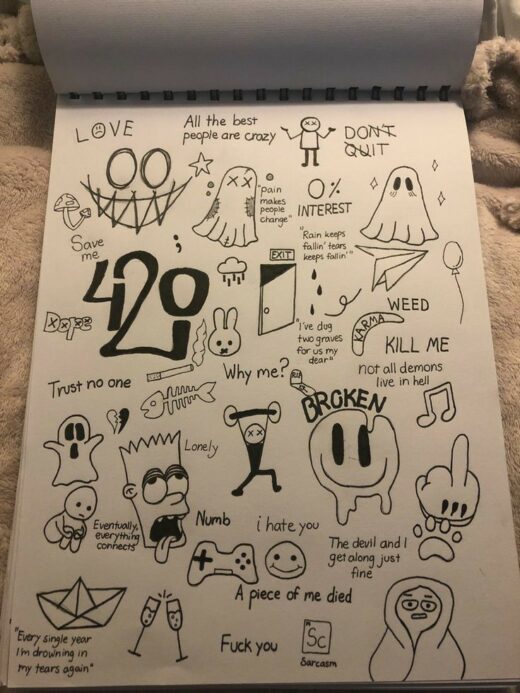 LOVE
All the best
people are crazy
DON'T
QUIT
"pain
makes
people
change"
0%
INTEREST
Save
me
;
"Rain keeps
fallin' tears
keeps fallin'"
EXIT
420
WEED
KARMA
Dope
"I've dug
two graves
for us my
dear"
KILL ME
Why me?
not all demons
live in hell
Trust no one
BROKEN
Lonely
Eventually,
everything
connects
Numb
i hate you
The devil and I
get along just
fine
A piece of me died
"Every single year
I'm drowning in
my tears again"
Fuck you
Sc
Sarcasm